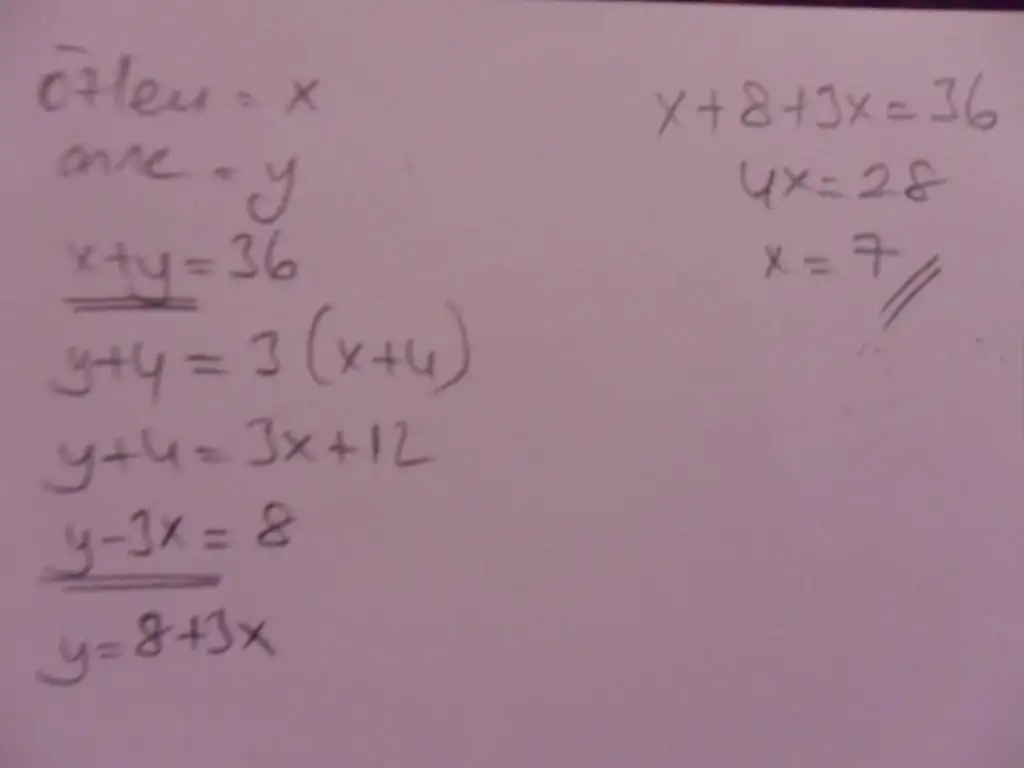 özlem = x
anne = y
x+y = 36
y+4 = 3 (x+4)
y+4 = 3x+12
y-3x = 8
y = 8+3x
x+8+3x = 36
4x = 28
x = 7 //